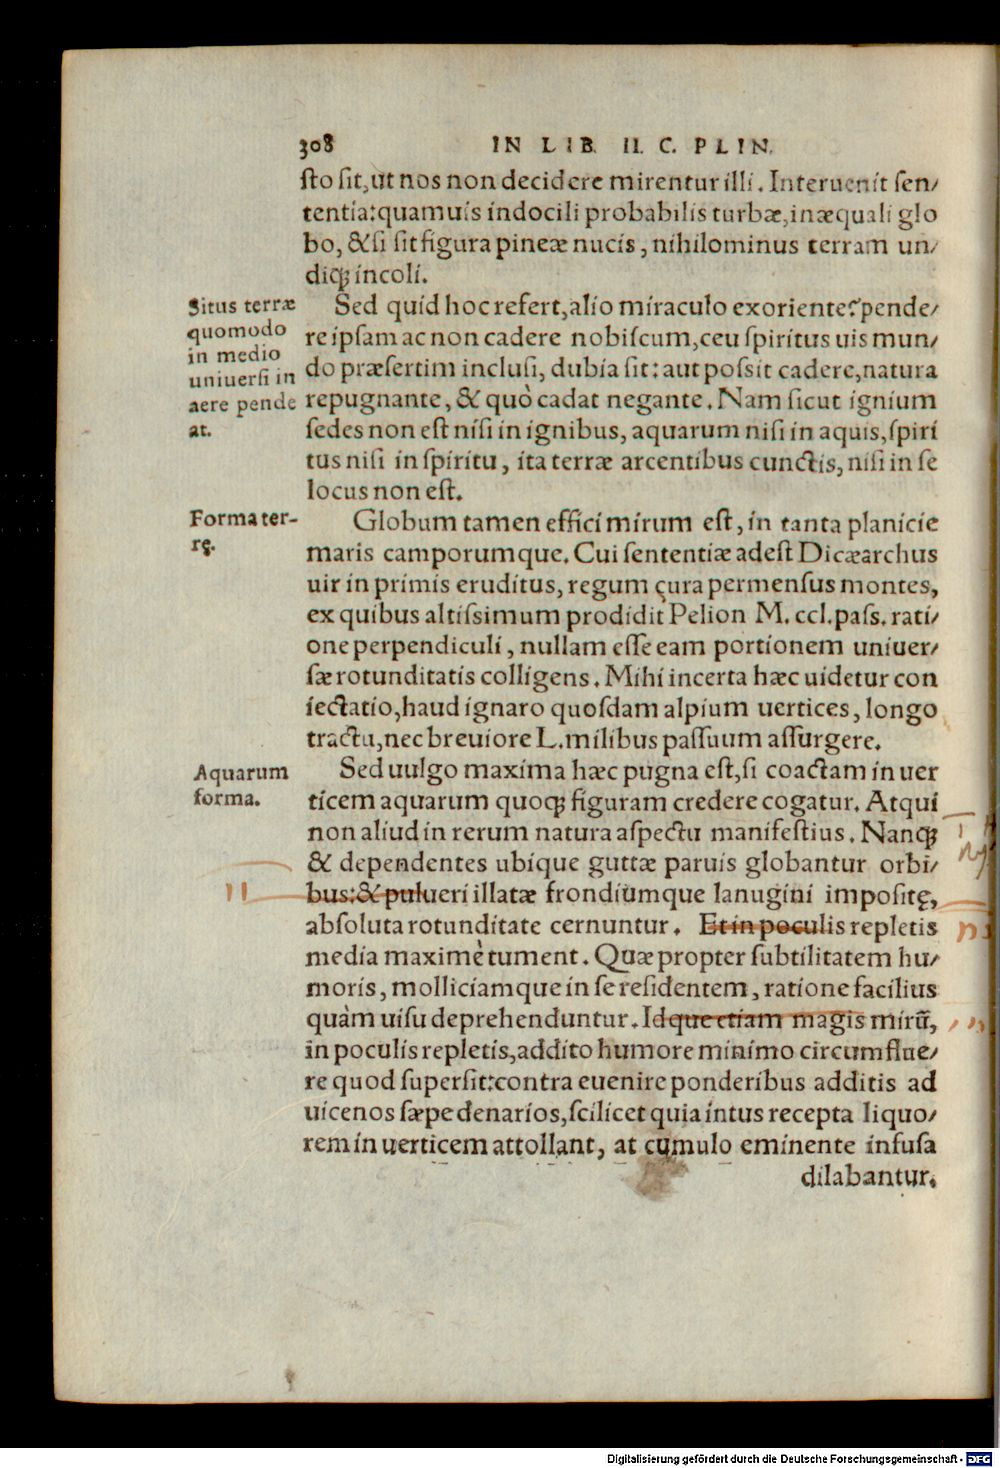 308 IN LIB. II. C. PLIN.
sto sit, ut nos non decidere mirentur illi. Interuenit sen/
tentia: quamuis indocili probabilis turbæ, inæquali glo
bo, & si sit figura pineæ nucis, nihilominus terram un/
diqꝫ incoli.
Situs terræ
quomodo
in medio
uniuersi in
aere pende
at.
Sed quid hoc refert, alio miraculo exoriente? pende/
re ipsam ac non cadere nobiscum, ceu spiritus uis mun/
do præsertim inclusi, dubia sit: aut possit cadere, natura
repugnante, & quò cadat negante. Nam sicut ignium
sedes non est nisi in ignibus, aquarum nisi in aquis, spiri
tus nisi in spiritu, ita terræ arcentibus cunctis, nisi in se
locus non est.
Forma ter-
rę.
Globum tamen effici mirum est, in tanta planicie
maris camporumque. Cui sententiæ adest Dicæarchus
uir in primis eruditus, regum cura permensus montes,
ex quibus altissimum prodidit Pelion M. ccl. pass. rati/
one perpendiculi, nullam esse eam portionem uniuer/
sæ rotunditatis colligens. Mihi incerta hæc uidetur con
iectatio, haud ignaro quosdam alpium uertices, longo
tractu, nec breuiore L. milibus passuum assurgere.
Aquarum
forma.
Sed uulgo maxima hæc pugna est, si coactam in uer
ticem aquarum quoqꝫ figuram credere cogatur. Atqui
non aliud in rerum natura aspectu manifestius. Nanqꝫ
& dependentes ubique guttæ paruis globantur orbi/
bus: & pulueri illatæ frondiumque lanugini impositę,
absoluta rotunditate cernuntur. Et in poculis repletis
media maximè tument. Quæ propter subtilitatem hu/
moris, molliciamque in se residentem, ratione facilius
quàm uisu deprehenduntur. Idque etiam magis mirũ,
in poculis repletis, addito humore minimo circumflue/
re quod supersit: contra euenire ponderibus additis ad
uicenos sæpe denarios, scilicet quia intus recepta liquo/
rem in uerticem attollant, at cumulo eminente infusa
dilabantur.
Digitalisierung gefördert durch die Deutsche Forschungsgemeinschaft - DFG